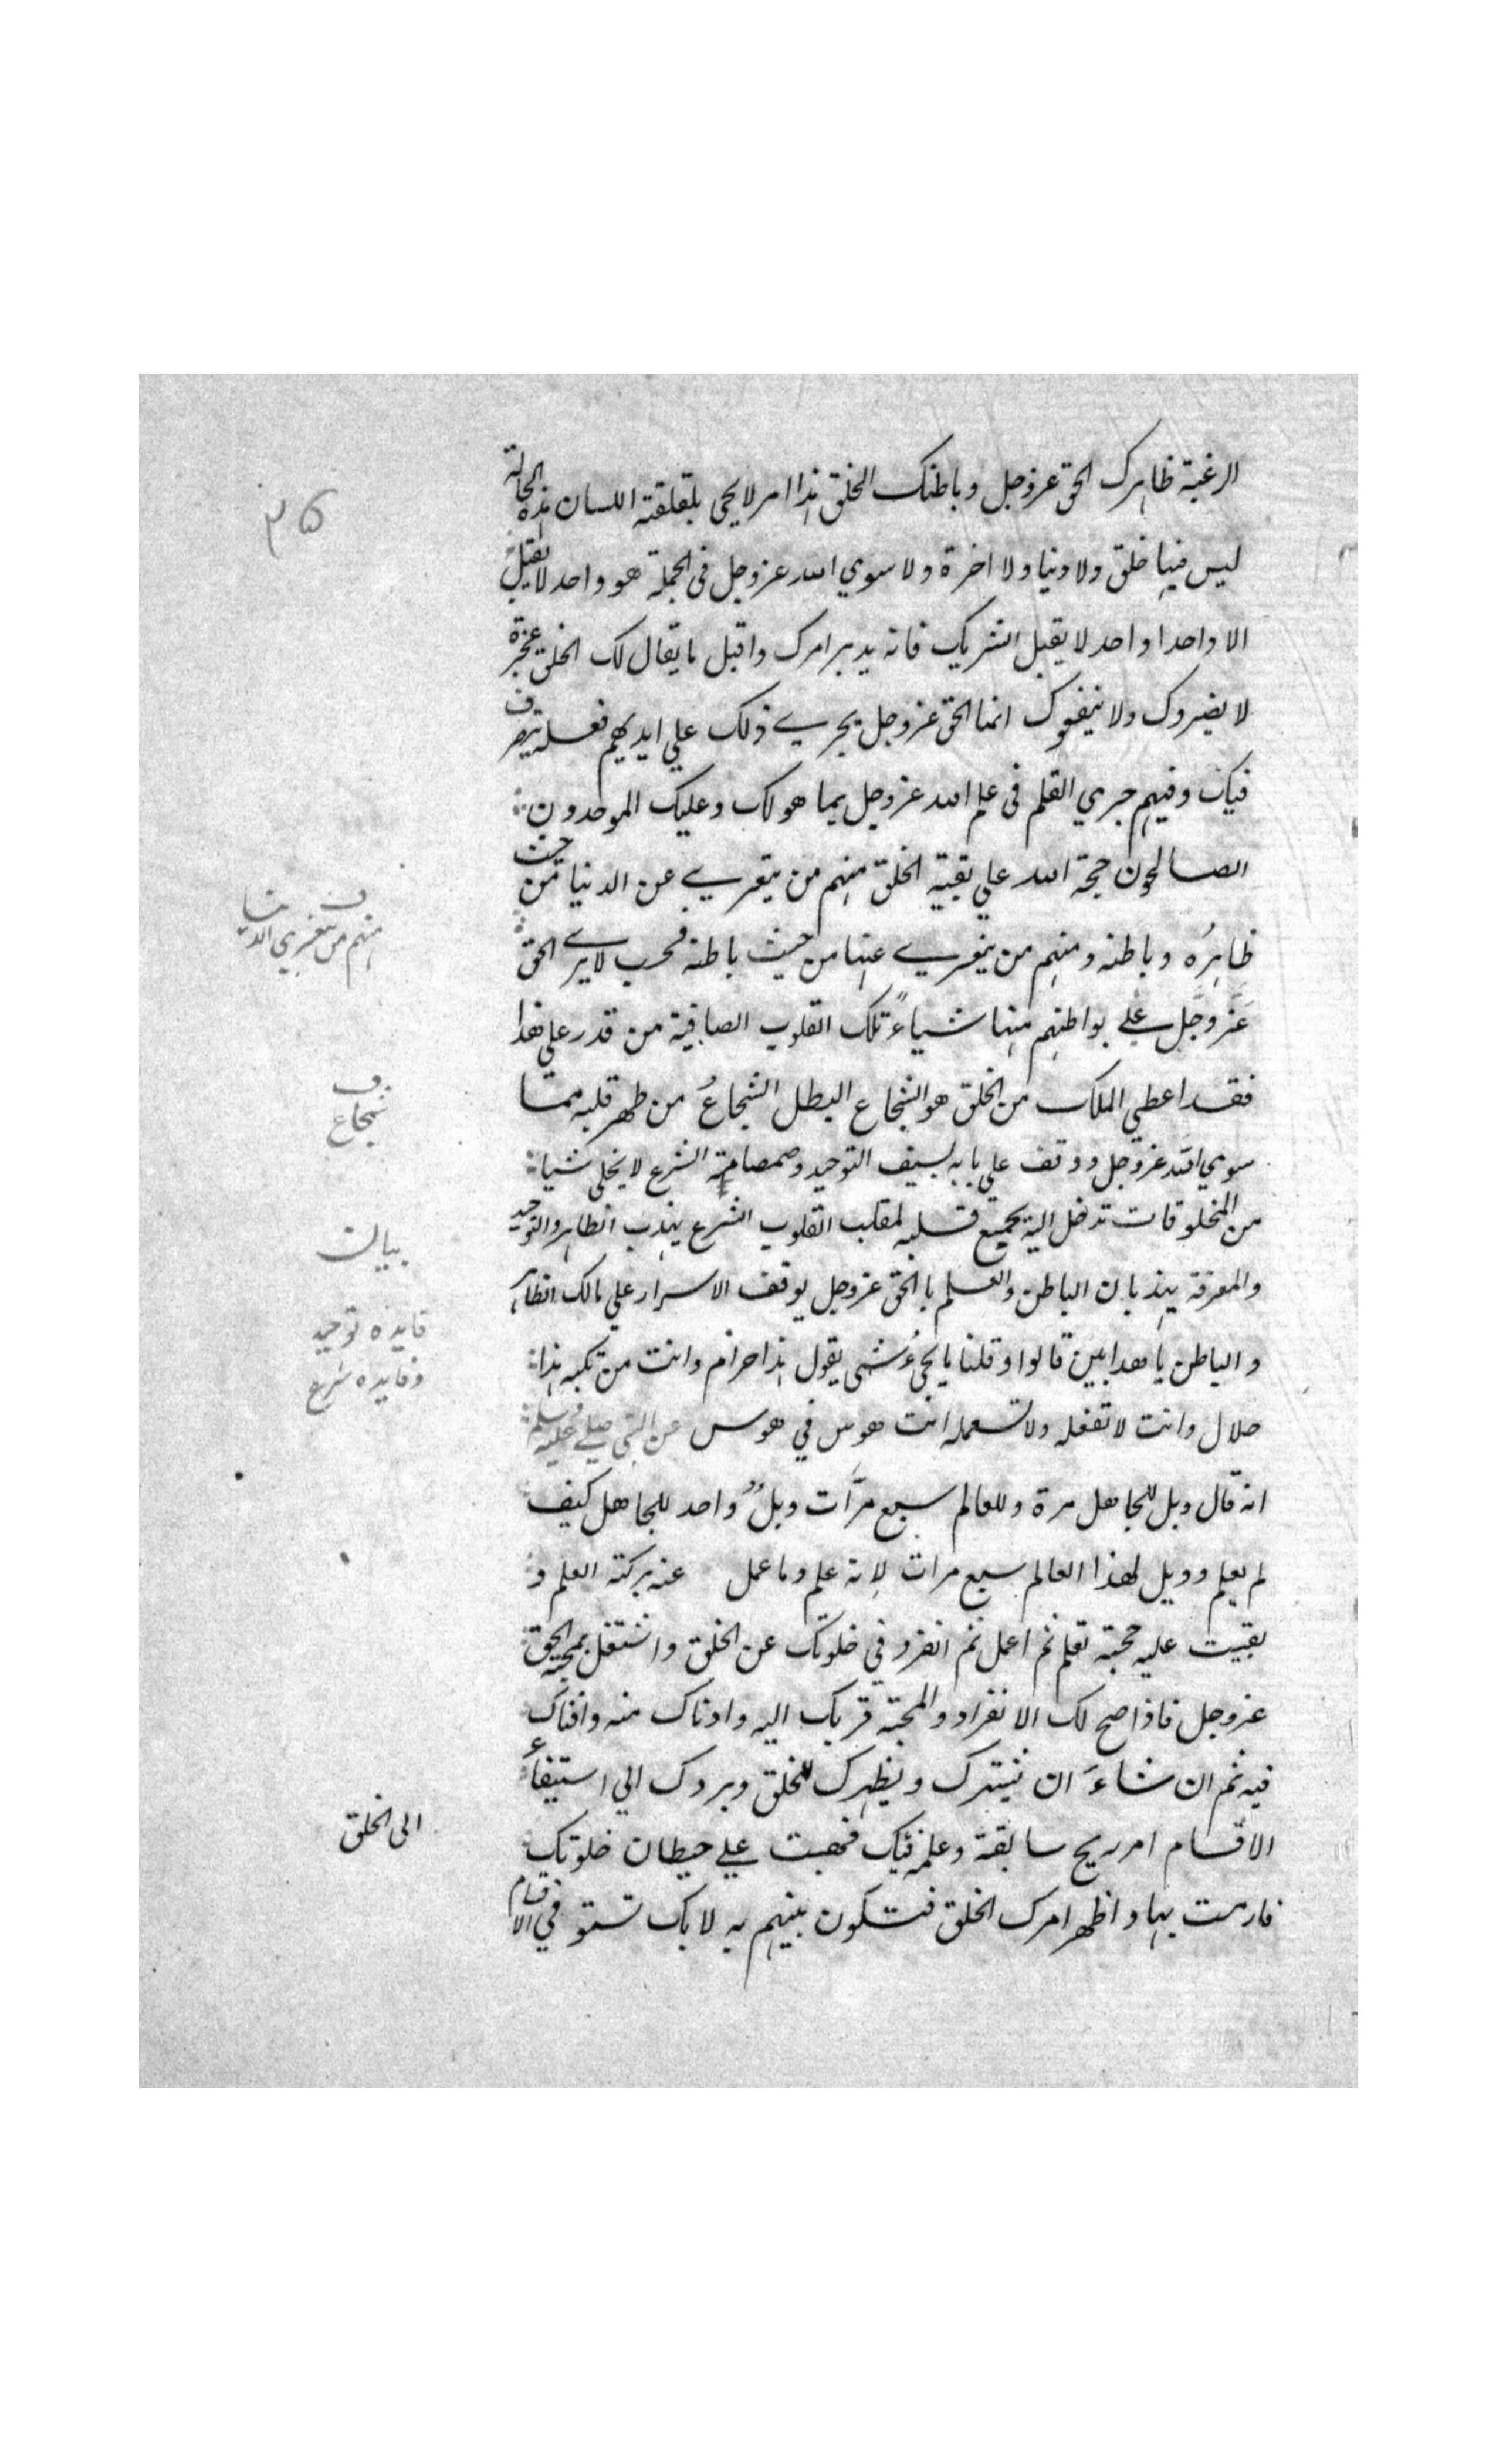 ۳۵
الرغبة ظاهرك الحق عزوجل وباطنك الخلق هذا امر لايجى بلقلقة اللسان هذه الحالة
ليس فيها خلق ولا دنيا ولا اخرة ولا سوي الله عزوجل فى الجملة هو واحد لايقبل
الا واحدا واحد لا يقبل الشريك فانه يدبر امرك واقبل ما يقال لك الخلق عجزة
لا يضروك ولا ينفعوك انما الحق عزوجل يجري ذلك علي ايديهم فعله يتصرف
فيك وفيهم جري القلم فى علم الله عزوجل بما هو لك وعليك الموحدون
الصالحون حجة الله علي بقية الخلق منهم من يتعري عن الدنيا من حيث
ف
منهم من يتعري الدنيا
ظاهره وباطنه ومنهم من يتعري عنها من حيث باطنه فحسب لا يري الحق
عزّوجّل علي بواطنهم منها شياءً تلك القلوب الصافية من قدر علي هذا
فقد اعطي الملك من الخلق هو الشجاع البطل الشجاعُ من طهر قلبه مما
ف
شجاع
سوي الله عزوجل ووقف علي بابه بسيف التوحيد وصمصامة الشرع لا يخلي شيا
من المخلوقات تدخل اليه يجمع قلبه لمقلب القلوب الشرع يهذب الظاهر والتوحيد
بيان
والمعرفة يهذبان الباطن والعلم بالحق عزوجل يوقف الاسرار علي مالك الظاهر
فايده توحيد
وفايده شرع
والباطن يا هذا بين قالوا وقلنا ما يجيُ شى يقول هذا حرام وانت مرتكبه هذا
حلال وانت لا تفعله ولا تستعمله انت هوس في هوس عن النبى صلي عليه وسلم
انه قال ويل للجاهل مرة وللعالم سبع مرّات ويلٌ واحد للجاهل كيف
لم يعلم وويل لهذا العالم سبع مرات لانه علم وما عمل عنه بركة العلم و
بقيت عليه حجته تعلم ثم اعمل ثم انفرد في خلوتك عن الخلق واشتغل بمحبة الحق
عزوجل فاذا صح لك الانفراد والمحبة قربك اليه وادناك منه وافناك
فيه ثم ان شاءَ ان يشهرك ويظهرك للخلق ويردك الي استيفاء
الى الخلق
الاقسام امر ريح سابقة وعلمه فيك فهبت علي حيطان خلوتك
فارمت بها واظهر امرك الخلق فتكون بينهم به لا بك تستو في الاقسام